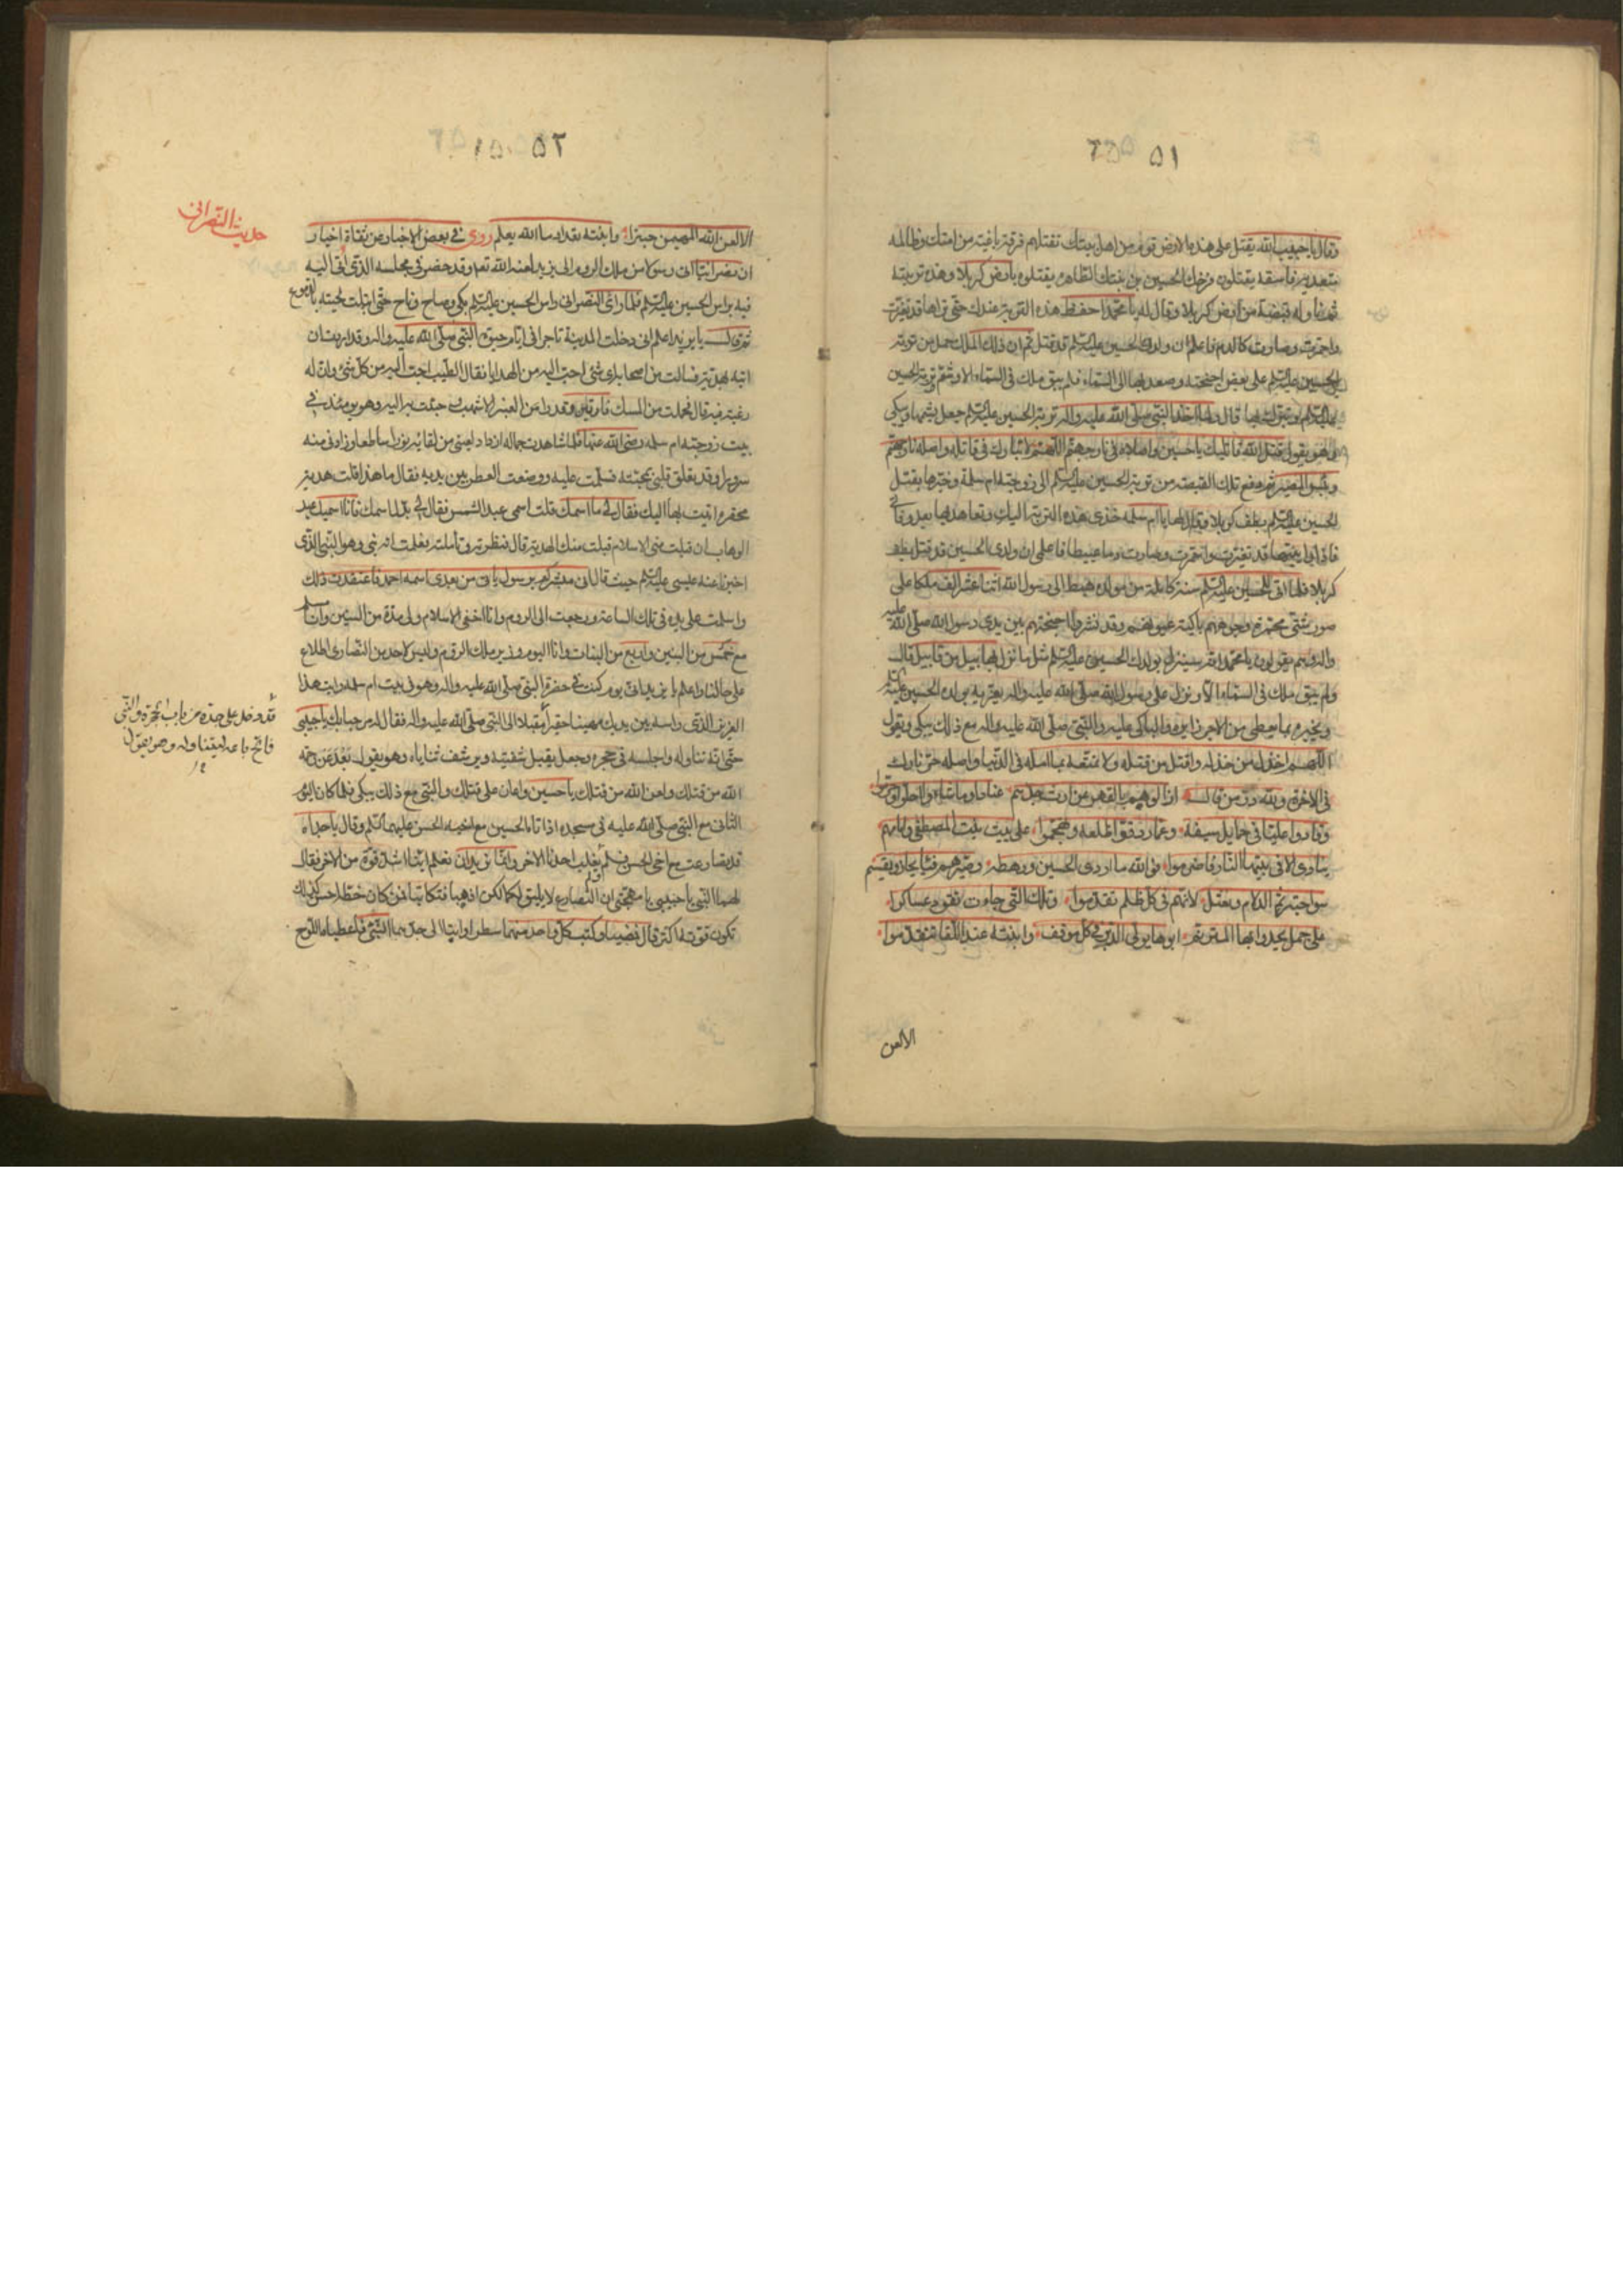 ٥١
وقال يا حبيب الله يقتل على هذه الارض قوم من اهل بيتك تقتلهم فرقة باغية من امتك ظالمة
متعدية فاسقة يقتلون فرخك الحسين بن بنتك الطاهرة يقتلوه بارض كربلا وهذه تربته
ثم ناوله قبضة من ارض كربلا وقال له يا محمد احفظ هذه التربة عندك حتى تراها قد تغيرت
واحمرت وصارت كالدم فاعلم ان ولدك الحسين عليه السلم قد قتل ثم ان ذلك الملك حمل من تربة
الحسين عليه السلم على بعض اجنحته وصعد بها الى السماء فلم يبق ملك في السماء الا وشم تربة الحسين
عليه السلم وتبرك بها قال ولما اخذ النبي صلى الله عليه واله تربة الحسين عليه السلم جعل يشمها ويبكي
وهو يقول قتل الله قاتليك يا حسين واصلاه في نار جهنم اللهم لا تبارك في قاتله واصله نار جهنم
وبئس المصير ثم دفع تلك القبضة من تربة الحسين عليه السلم الى زوجته ام سلمة وخبرها بقتل
الحسين عليه السلم بطف كربلا وقال لها يا ام سلمه خذي هذه التربة اليك وتعاهديها بعد وفاتي
فاذا رايتيها قد تغيرت واحمرت وصارت دما عبيطا فاعلمي ان ولدي الحسين قد قتل بطف
كربلا فلما اتى للحسين عليه السلم سنة كاملة من مولده هبط الى رسول الله اثنا عشر الف ملكا على
صور شتى محمرة وجوههم باكية عيونهم وقد نشروا اجنحتهم بين يدي رسول الله صلى الله عليه
واله وهم يقولون يا محمد انه سينزل بولدك الحسين عليه السلم مثل ما نزل بهابيل من قابيل قال
ولم يبق ملك في السماء الا ونزل على رسول الله صلى الله عليه واله يعزيه بولده الحسين عليه السلم
ويخبره بما يعطى من الاجر زايره والباكي عليه والنبي صلى الله عليه واله مع ذلك يبكي ويقول
اللهم اخذل من خذله واقتل من قتله ولا تمتعه بما امله في الدنيا واصله حر نارك
في الاخرة ولله در من قال
وقادوا عليا في حمايل سيفه وعمار دقوا ضلعه وهجموا على بيت بنت المصطفى وامامهم
على جمل يحدوا بها ابوها يولي الدبر في كل موقف وابنته عند اللقا تتقدموا
الالعن
٥٢
الا لعن الله المهيمن حبترا وابنته بعداد ما الله يعلم روي في بعض الاخبار عن ثقاة اخيار
ان نصرانيا اتى رسولا من ملك الروم الى يزيد لعنه الله تعه وقد حضر في مجلسه الذي اتى اليه
فيه براس الحسين عليه السلم فلما راى النصراني راس الحسين عليه السلم بكى وصاح وناح حتى ابتلت لحيته بالدموع
ثم قال يا يزيد اعلم اني دخلت المدينة تاجرا في ايام حيوة النبي صلى الله عليه واله وقد اردت ان
اتيه بهدية فسالت من اصحابه اي شئ احب اليه من الهدايا فقال الطيب احب اليه من كل شئ وان له
رغبة فيه قال فحملت من المسك فارتين وقدرا من العنبر الاشهب وجئت به اليه وهو يومئذ في
بيت زوجته ام سلمه رضي الله عنها فلما شاهدت جماله ازداد لعيني من لقائه نورا ساطعا وزادني منه
سرورا وقد تعلق قلبي بمحبته فسلمت عليه ووضعت العطر بين يديه فقال ما هذا قلت هدية
محقرة اتيت بها اليك فقال لي ما اسمك قلت اسمي عبد الشمس فقال لي بدل اسمك فانا اسميك عبد
الوهاب ان قبلت مني الاسلام قبلت منك الهدية قال فنظرته وتاملته فعلمت انه نبي وهو النبي الذي
اخبرنا عنه عيسى عليه السلم حيث قال اني مبشر لكم برسول ياتي من بعدي اسمه احمد فاعتقدت ذلك
واسلمت على يده في تلك الساعة ورجعت الى الروم وانا اخفي الاسلام ولي مدة من السنين وانا مسلم
مع خمس من البنين واربع من البنات وانا اليوم وزير ملك الروم وليس لاحد من النصارى اطلاع
على حالنا واعلم يا يزيد اني يوم كنت في حضرة النبي صلى الله عليه واله وهو في بيت ام سلمه رايت هذا
العزيز الذي راسه بين يديك مهينا حقيرا مقبلا الى النبي صلى الله عليه واله فقال له مرحبا بك يا حبيبي
حتى انه تناوله واجلسه في حجره وجعل يقبل شفتيه ويرشف ثناياه وهو يقول بعد عن رحمة
الله من قتلك ولعن الله من قتلك يا حسين واعان على قتلك والنبي مع ذلك يبكي فلما كان اليوم
الثاني مع النبي صلى الله عليه في مسجده اذا تاه الحسين مع اخيه الحسن عليهما السلم وقال يا جداه
قد تصارعت مع اخي الحسن فلم يغلب احدنا الاخر وانا نريد ان نعلم اينا اشد قوة من الاخر فقال
لهما النبي يا حبيبي يا مهجتي ان التصارع لا يليق لكما لكن اذهبا فتكاتبا فمن كان خطه احسن كذلك
تكون قوته اكثر قال فمضيا وكتب كل واحد منهما سطرا واتيا الى جدهما النبي فاعطياه اللوح
حديث النصراني
قد دخل على جده من باب الحجرة والنبي
فاتح باعه ليتناوله وهو يقول